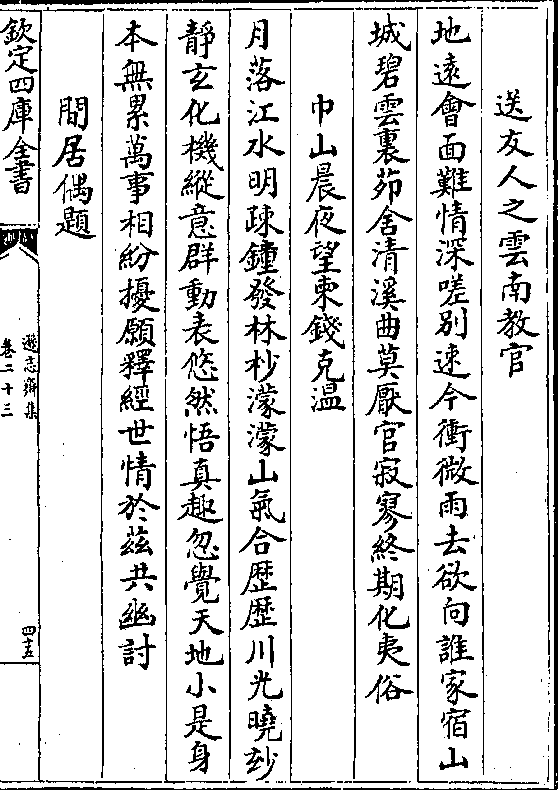 送友人之雲南教官
地遠會面難情深嗟别速今衝微雨去欲向誰家宿山
城碧雲裏茆舍清溪曲莫厭官寂寥終期化夷俗
巾山晨夜望柬錢克温
月落江水明疎鐘發林杪濛濛山氣合歴歴川光曉玅
靜玄化機縱意群動表悠然悟真趣忽覺天地小是身
本無累萬事相紛擾願釋經世情於兹共幽討
閒居偶題
欽定四庫全書
遜志齋集
卷二十三
四五